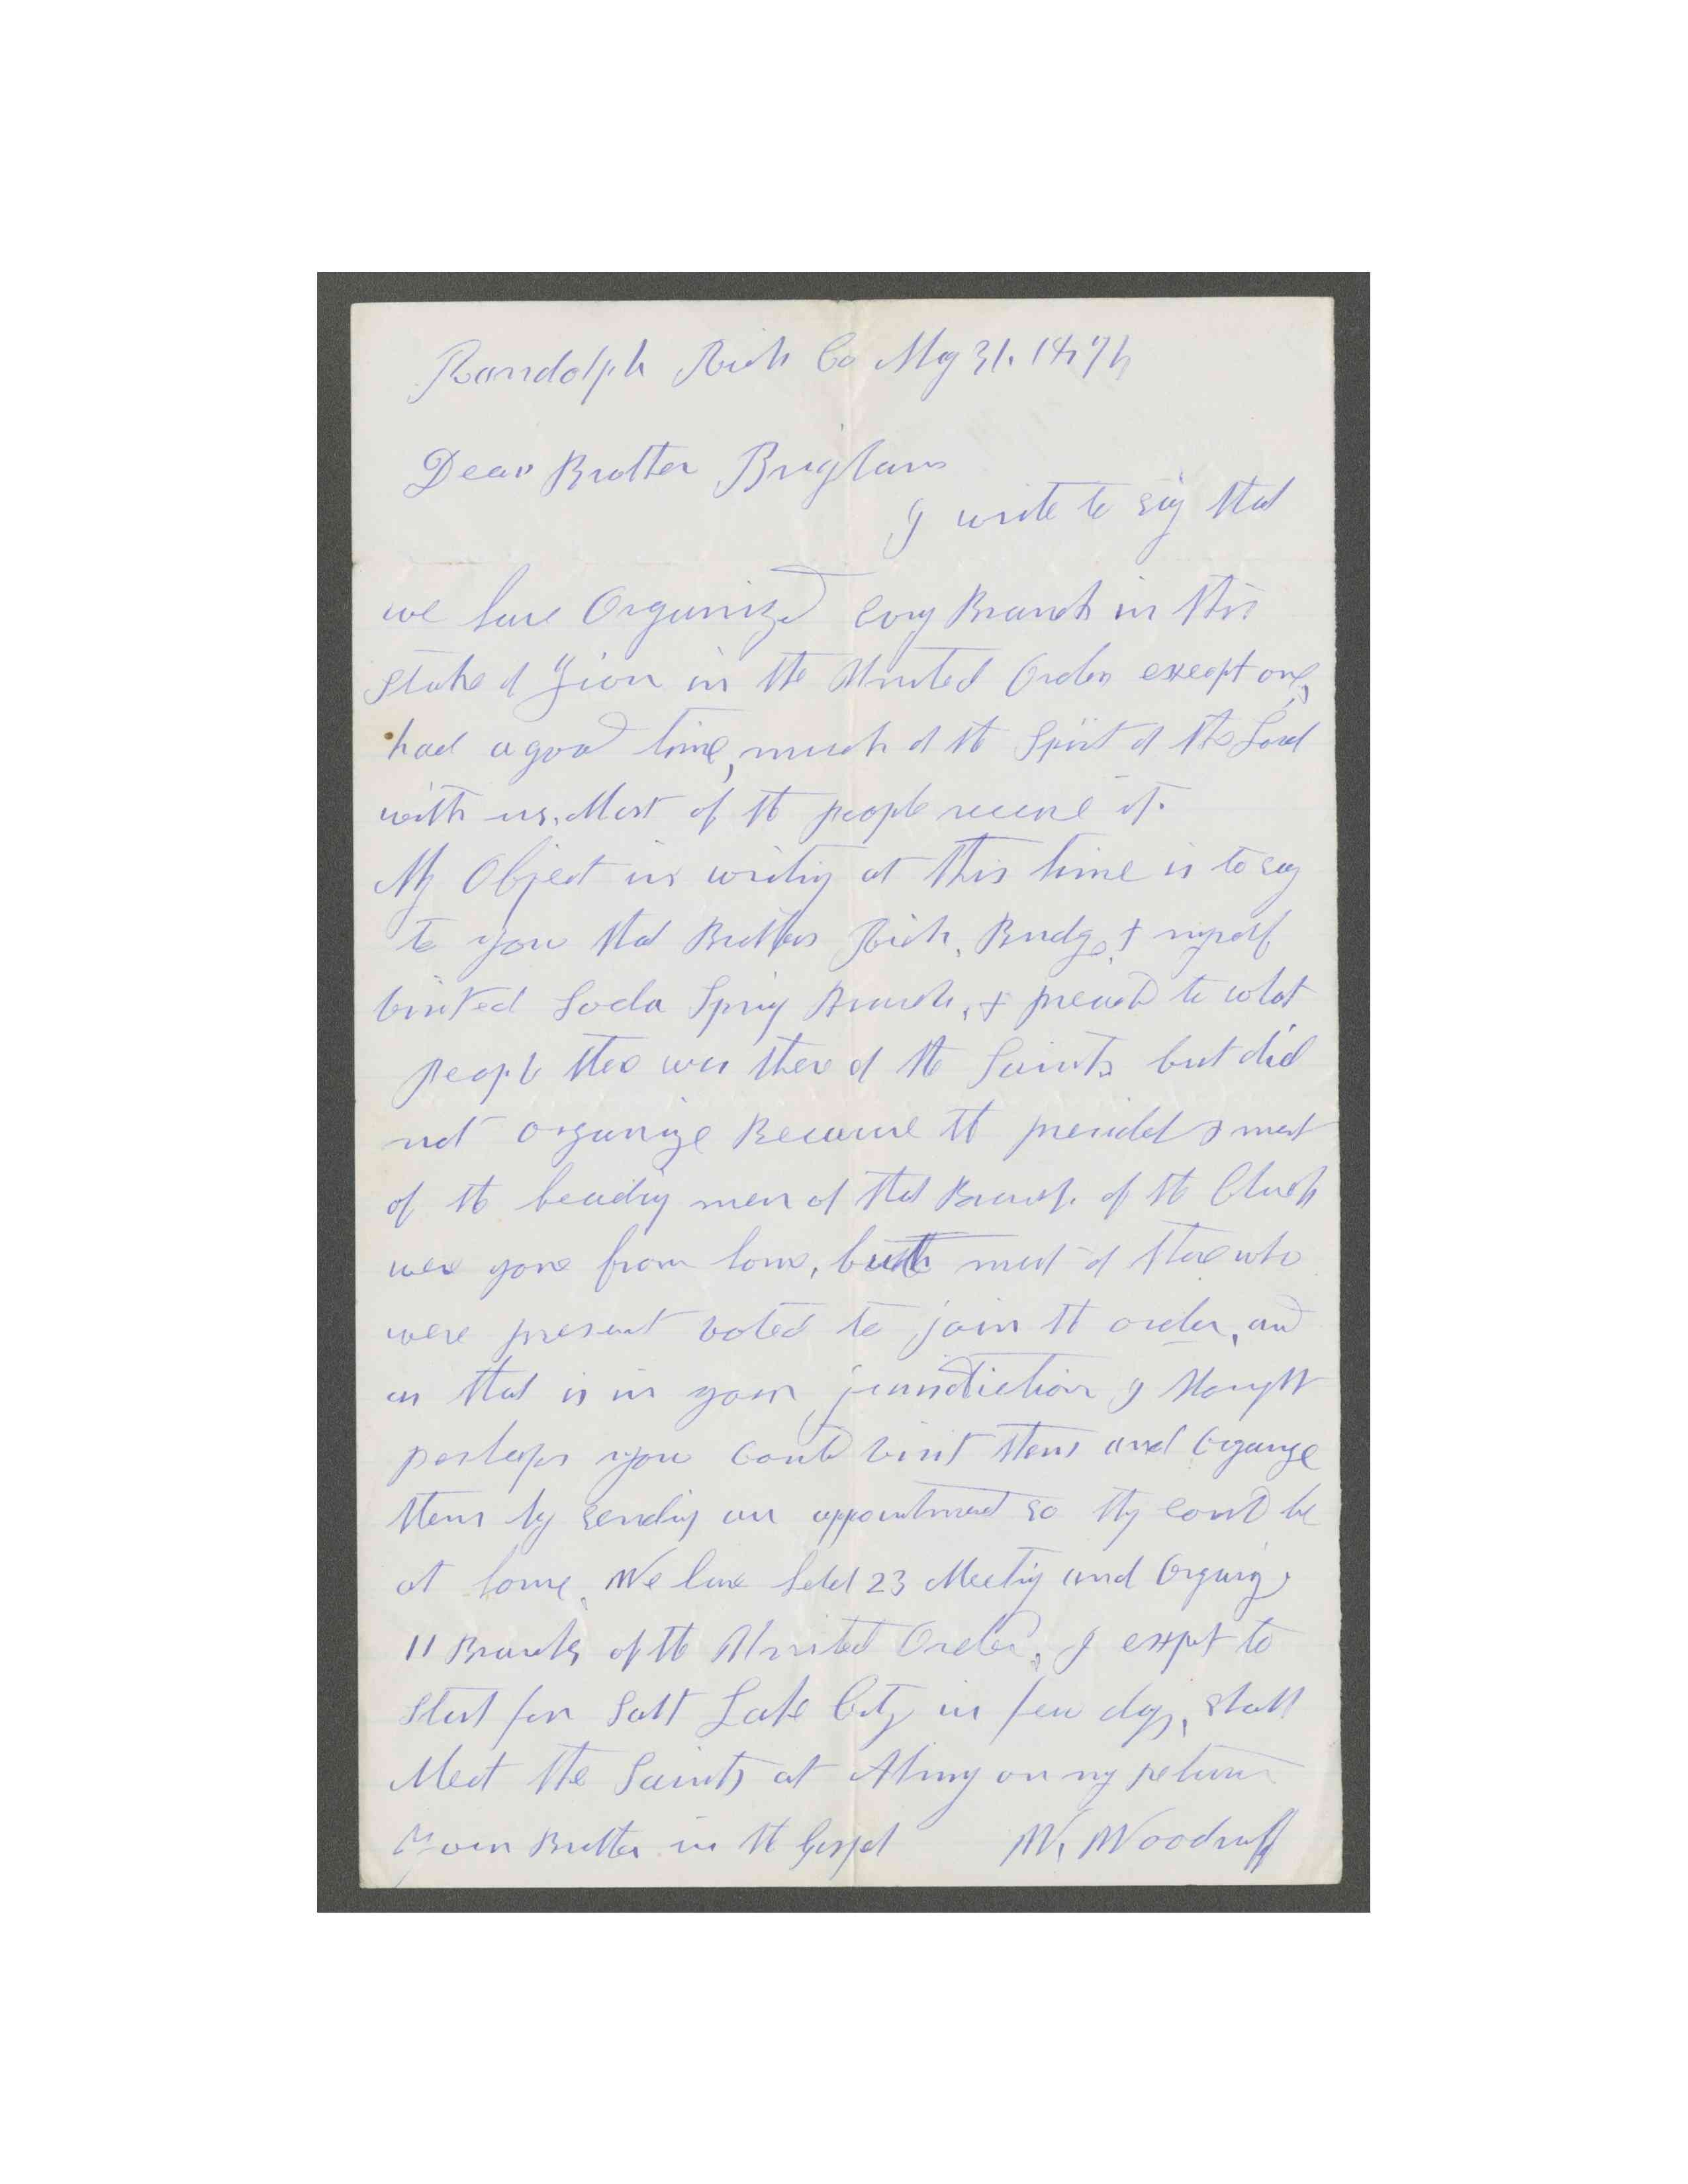 Randolph Rich Co May 31. 1874
Dear Brother Brigham
I write to say that
we have Organized evry Branch in this
Stake of Zion in the United Order except one,
had a good time, much of the Spirit of the Lord
with us. Most of the people receive it.
My Object in writing at this time is to say
to you that Brothers Rich, Budge, & myself
visited Soda Spring Branch, & preached to what
people ther was there of the Saints but did
not organize Because the president & most
of the leading men of that Branch of the Church
were gone from home, but most of those who
were present voted to join the order, and
as that is in your jurisdiction I thought
perhaps you could visit them and Organize
them by sending an appointment so they could be
at home. We have held 23 Meeting and Organized
11 Branches of the United Order. I expet to
start for Salt Lake City in few days, shall
Meet the Saints at Almy on my return
Your Brother in the Gospel W. Woodruff